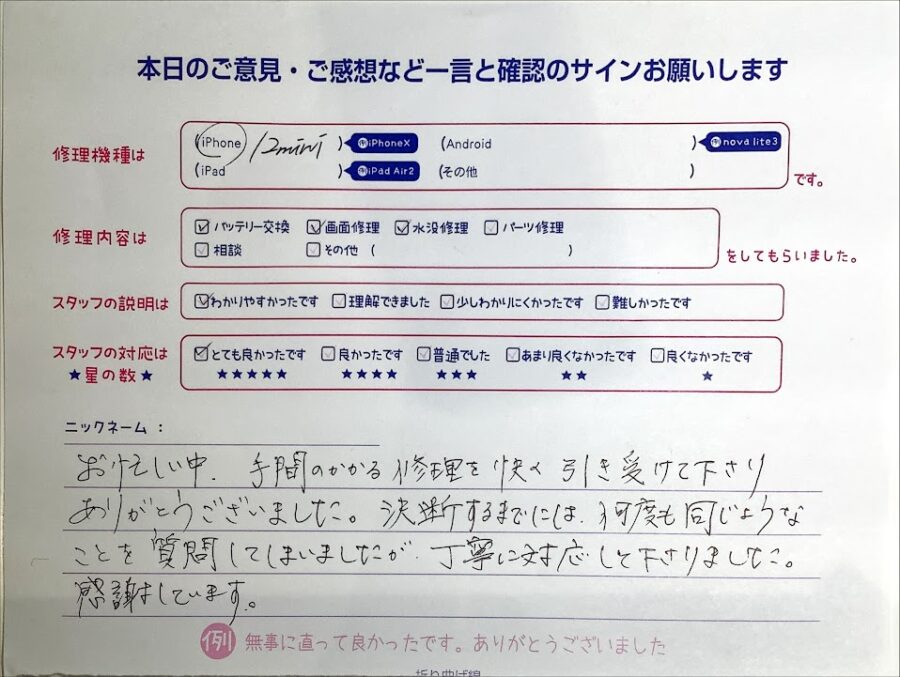 本日のご意見・ご感想など一言と確認のサインお願いします
修理機種は
(iPhone 12mini ) iPhoneX (Android ) nova lite3
(iPad ) iPad Air2 (その他 ) です。
修理内容は
☑バッテリー交換 ☑画面修理 ☑水没修理 □パーツ修理
□相談 □その他 ( ) をしてもらいました。
スタッフの説明は ☑わかりやすかったです □理解できました □少しわかりにくかったです □難しかったです
スタッフの対応は ☑とても良かったです □良かったです □普通でした □あまり良くなかったです □良くなかったです
★星の数★ ★★★★★ ★★★★ ★★★ ★★ ★
ニックネーム：
お忙しい中、手間のかかる修理を快く引き受けて下さり
ありがとうございました。決断するまでには、何度も同じような
ことを質問してしまいましたが、丁寧に対応して下さりました。
感謝しています。
例 無事に直って良かったです。ありがとうございました